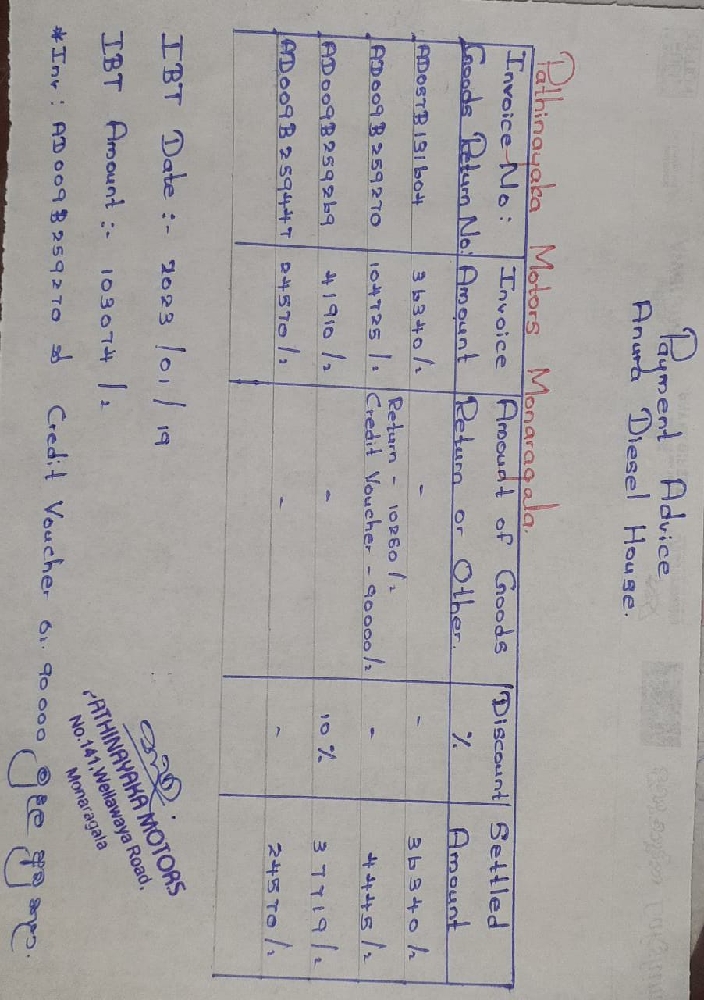 Payment Advice
Anura Diesel House.
Pathinayaka Motors Monaragala.
Invoice No: Goods Return No: | Invoice Amount | Amount of Goods Return or Other. | Discount % | Settled Amount
AD057B131604 | 36340/= | - | - | 36340/=
AD009B259270 | 104725/= | Return - 10280/= Credit Voucher - 90000/= | - | 4445/=
AD009B259269 | 41910/= | - | 10% | 37719/=
AD009B259447 | 24570/= | - | - | 24570/=
IBT Date :- 2023/01/19
IBT Amount :- 103074/=
*Inv: AD009B259270 Credit Voucher 90000
PATHINAYAKA MOTORS
No.141, Wellawaya Road,
Monaragala